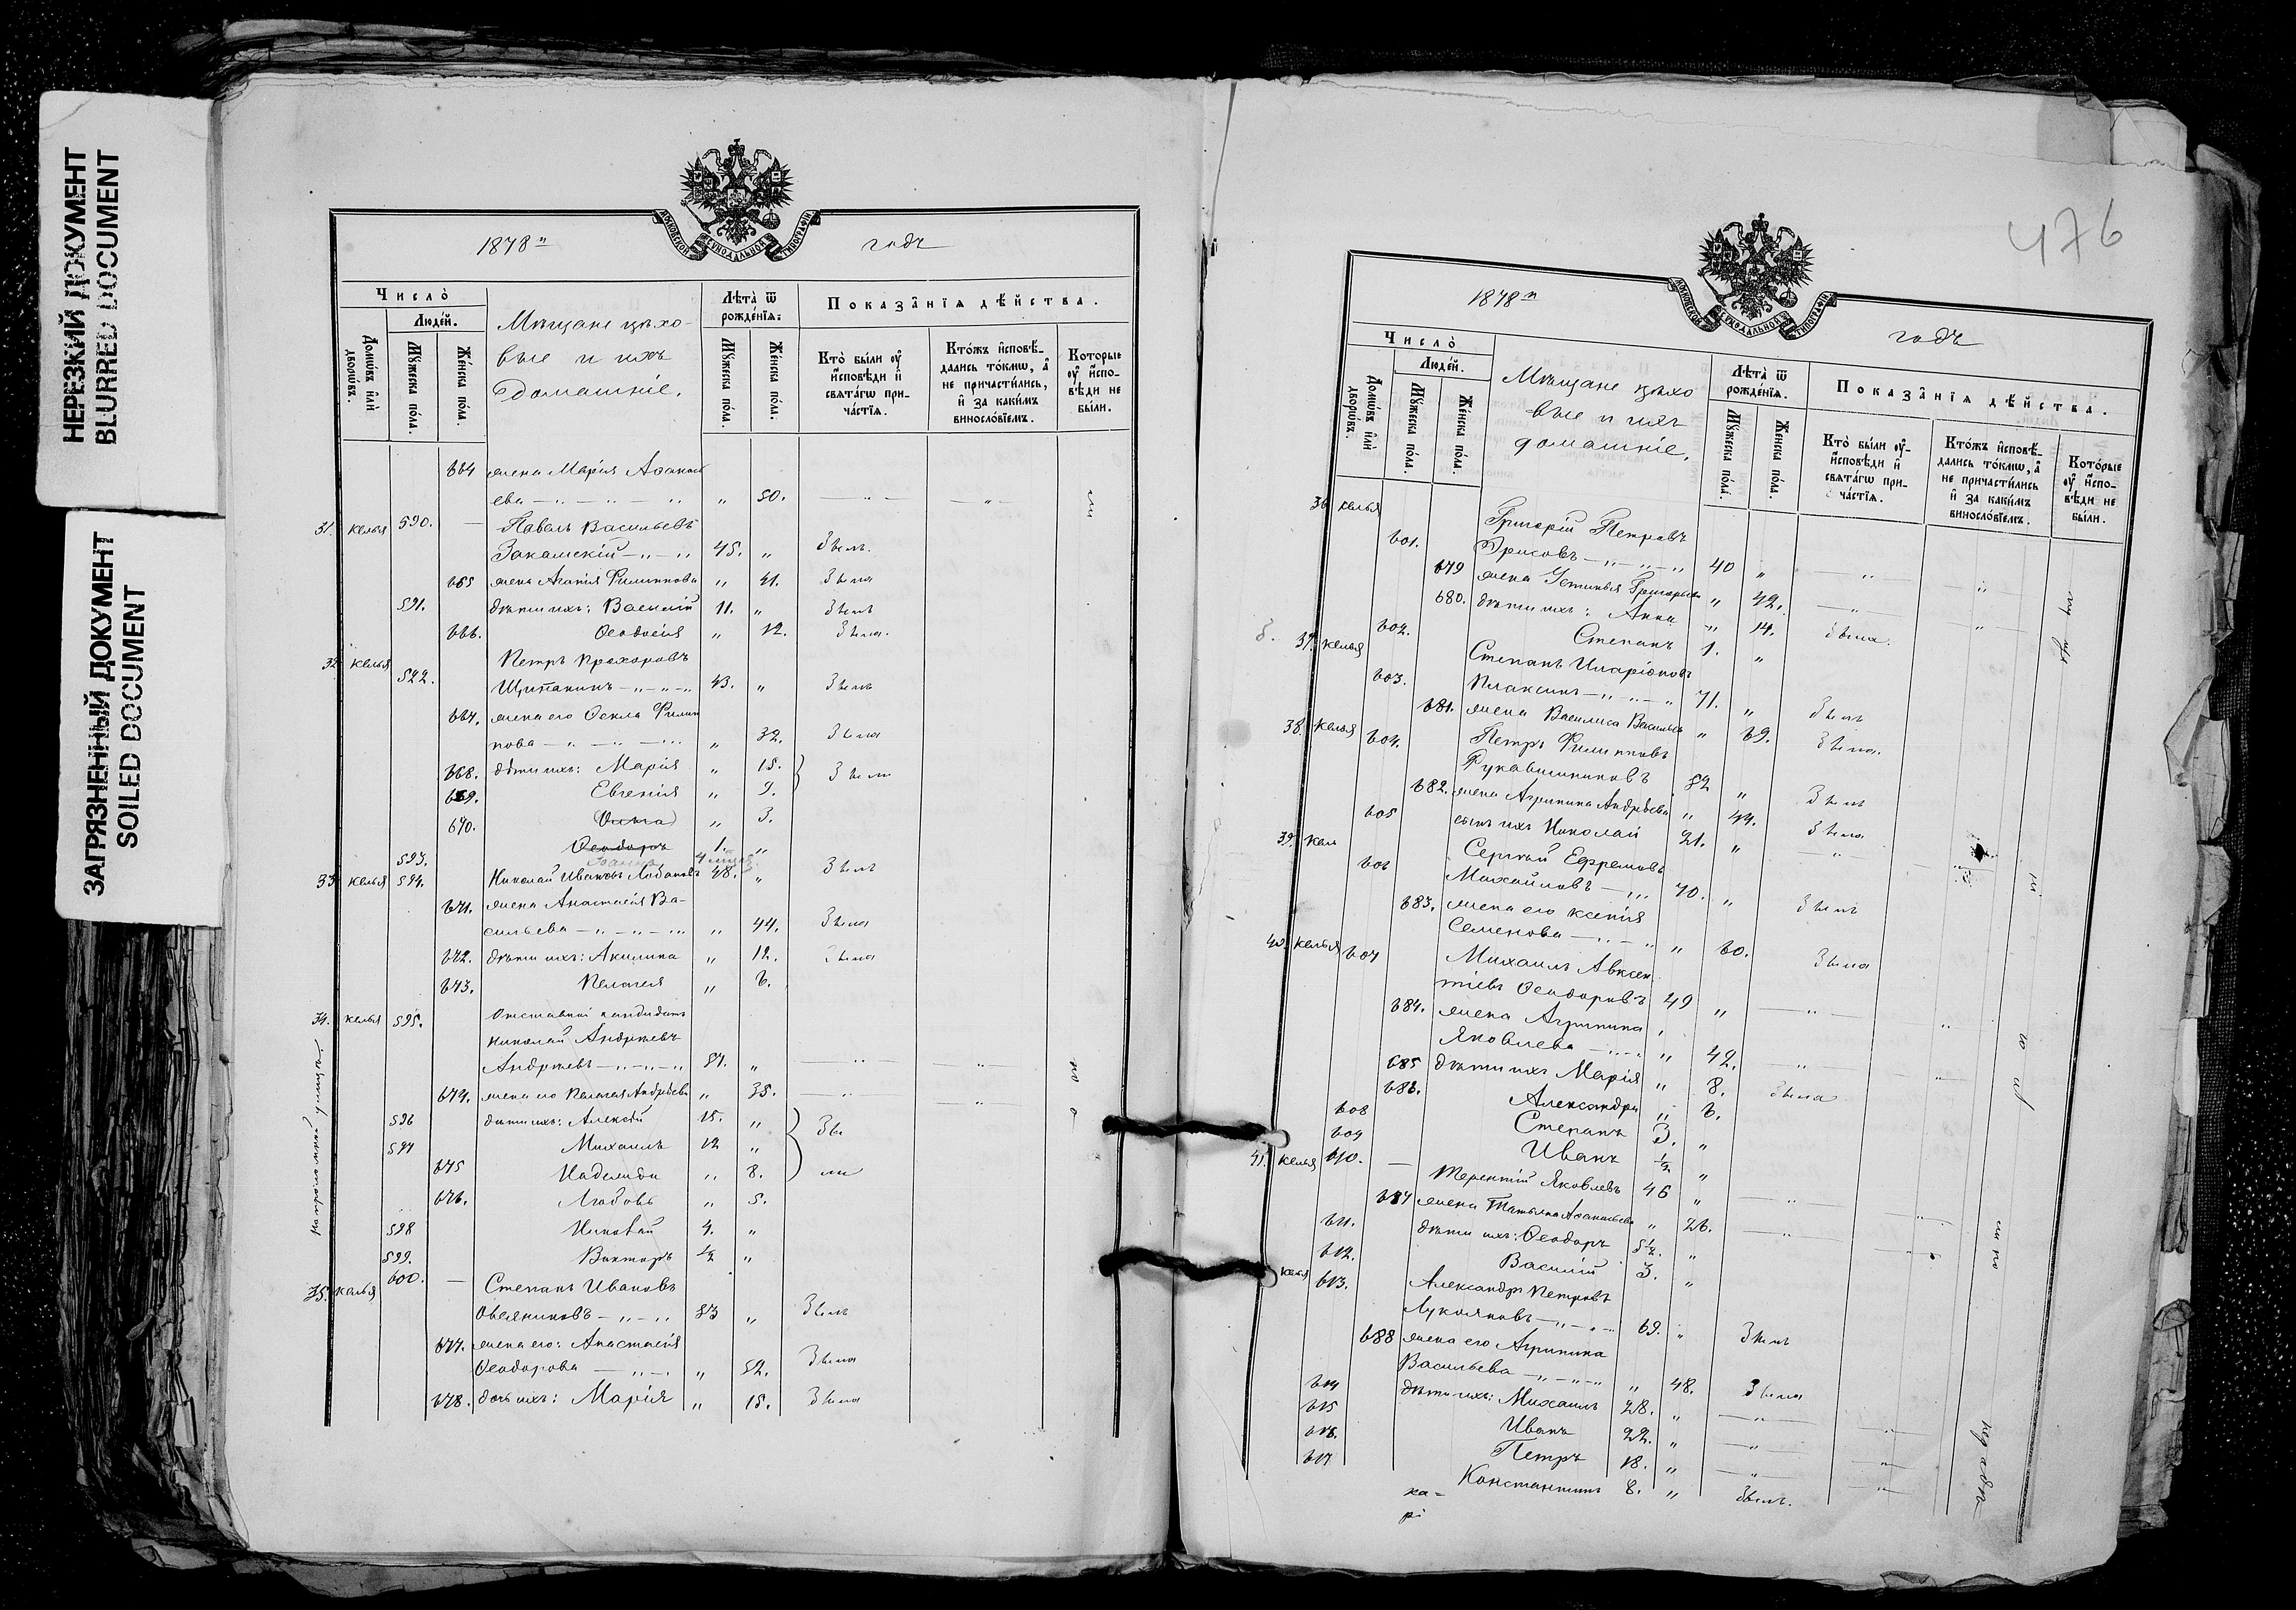 НЕРЕЗКИЙ ДОКУМЕНТ
BLURRED DOCUMENT
ЗАГРЯЗНЕННЫЙ ДОКУМЕНТ
SOILED DOCUMENT
МОСКОВСКОЙ СѴНОДАЛЬНОЙ ТИПОГРАФІИ
1878 годъ
Число̀
Людей.
Домѡвъ и҆лѝ дворѡвъ.
Мꙋжеска пола.
Женска пола.
Мѣщане цѣхо-
вые и ихъ
домашніе.
Лѣта̀ ѿ рожденїѧ:
Мꙋжеска пола.
Женска пола.
Показа̂нїѧ дѣйства.
Кто̀ были ᲂу҆ и҆сповѣди и҆ свѧтагѡ причастїѧ.
Кто́жъ и҆сповѣдались то́кмѡ, а҆ не причастились, и҆ за какимъ винословїемъ.
Которые ᲂу҆ и҆сповѣди не были.
664 жена Марія Афанась
ева „ 50.
31. келья 590. Павелъ Васильевъ
Закамскій 45. „
665 жена Агапія Филиппова „ 41.
591. дѣти ихъ: Василій 11. „
666. Ѳеодосія „ 12.
32 келья Петръ Прохоровъ
592. 43. „
667. жена его Ѳекла Филип
пова „ 32.
668. дѣти ихъ: Марія „ 15.
669. Евгенія „ 9.
670. Ольга „ 3.
593. Ѳеодоръ 1. „
33 келья 594. Николай Ивановъ Лобановъ 48. „
671. жена Анастасія Ва-
сильева „ 44.
672. дѣти ихъ: Акилина „ 12.
673. Пелагея „ 6.
34. келья 595. Отставной кандидатъ
Николай Андреевъ
Андреевъ „
674. жена его Пелагея Андреева „ 35.
596 дѣти ихъ: Алексѣй 15. „
597 Михаилъ 12 „
675 Надежда „ 8.
676. Любовь „ 5.
598 Николай 4. „
599. Викторъ ½ „
35. келья 600. Степанъ Ивановъ
Овсянниковъ 53 „
677. жена его: Анастасія
Ѳеодорова „ 52.
678. дочь ихъ: Марія „ 15.
476
1878 годъ
Число̀
Людей.
Домѡвъ и҆лѝ дворѡвъ.
Мꙋжеска пола.
Женска пола.
Мѣщане цѣхо
вые и ихъ
домашніе.
Лѣта̀ ѿ рожденїѧ.
Мꙋжеска пола.
Женска пола.
Показа̂нїѧ дѣйства.
Кто̀ были ᲂу҆ и҆сповѣди и҆ свѧтагѡ причастїѧ.
Кто́жъ и҆сповѣдались то́кмѡ, а҆ не причастились и҆ за какимъ винословїемъ.
Которые ᲂу҆ и҆сповѣди не были.
36 келья
601. Григорій Петровъ
40 „
679 жена Устинья Григорьева „ 42.
680. дѣти ихъ: Анна „ 14.
602. Степанъ 1. „
37. келья Степанъ Иларіоновъ
603. Плаксинъ 71. „
681. жена Василиса Васильева „ 69.
38. келья 604. Петръ Филипповъ
Рукавишниковъ 52 „
682. жена Агрипина Андреева „ 44.
605 сынъ ихъ Николай 21. „
39. кел Сергѣй Ефремовъ
606 Михайловъ 70. „
683. жена его Ксенія
Семенова „ 60.
40. келья 607 Михаилъ Авксен
тіевъ Ѳеодоровъ 49 „
684. жена Агрипина
Яковлева „ 42.
685 дѣти ихъ Марія „ 8.
686. Александра „ 6.
608 Степанъ 3. „
609 Иванъ ½ „
41. келья 610. Терентій Яковлевъ 46 „
687 жена Татьяна Афанасьева „ 26.
611. дѣти ихъ: Ѳеодоръ 5½. „
612. Василій 3. „
келья 613. Александръ Петровъ
Лукояновъ 69. „
688 жена его Агрипина
Васильева „ 48.
614 дѣти ихъ: Михаилъ 28. „
615 Иванъ 22. „
616. Петръ 18. „
617 Константинъ 8. „
ка=
рі